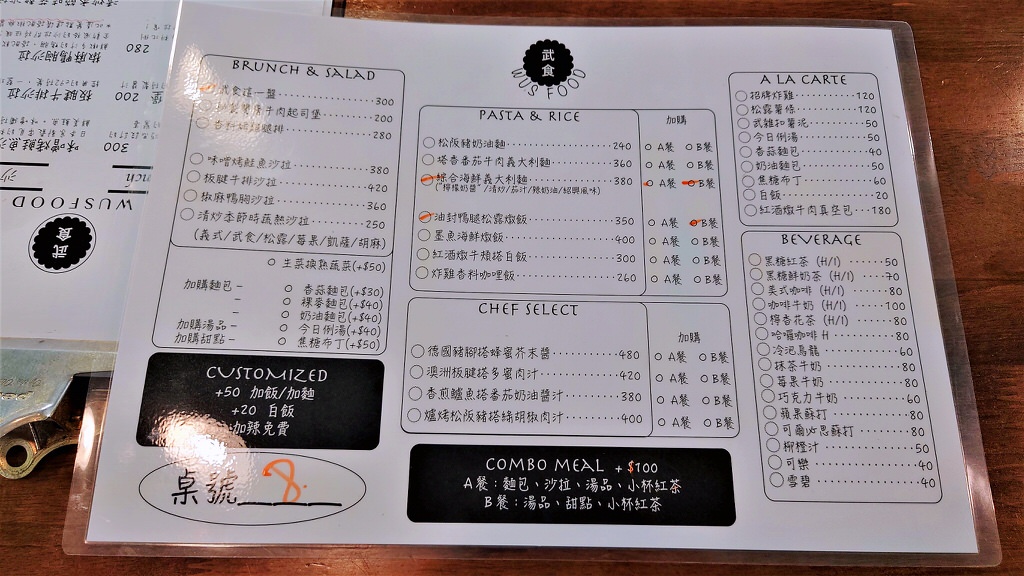 武食
WUS FOOD
BRUNCH & SALAD
武食這一盤 300
牛肉起司堡 200
腿排 280
味噌烤鮭魚沙拉 380
板腱牛排沙拉 420
椒麻鴨胸沙拉 360
清炒季節時蔬熱沙拉 250
(義式/武食/松露/莓果/凱薩/胡麻)
生菜換熟蔬菜(+$50)
加購麵包- 香蒜麵包(+$30)
- 裸麥麵包(+$40)
- 奶油麵包(+$40)
加購湯品- 今日例湯(+$40)
加購甜點- 焦糖布丁(+$50)
CUSTOMIZED
+50 加飯/加麵
+20 白飯
加辣免費
桌號 8.
PASTA & RICE 加購
松阪豬奶油麵 240 A餐 B餐
搭香番茄牛肉義大利麵 360 A餐 B餐
綜合海鮮義大利麵 380 A餐 B餐
("檸檬奶醬"/清炒/茄汁/辣奶油/紹興風味)
油封鴨腿松露燉飯 350 A餐 B餐
墨魚海鮮燉飯 400 A餐 B餐
紅酒燉牛頰搭白飯 300 A餐 B餐
炸雞香料咖哩飯 260 A餐 B餐
CHEF SELECT
加購
德國豬腳搭蜂蜜芥末醬 480 A餐 B餐
澳洲板腱搭多蜜肉汁 420 A餐 B餐
香煎鱸魚搭番茄奶油醬汁 380 A餐 B餐
爐烤松阪豬搭綠胡椒肉汁 400 A餐 B餐
COMBO MEAL +$100
A餐:麵包、沙拉、湯品、小杯紅茶
B餐:湯品、甜點、小杯紅茶
A LA CARTE
招牌炸雞 120
松露薯條 120
武雞扣薯泥 50
今日例湯 50
香蒜麵包 40
奶油麵包 50
焦糖布丁 60
白飯 20
紅酒燉牛肉真空包 180
BEVERAGE
黑糖紅茶 (H/I) 50
黑糖鮮奶茶 (H/I) 70
美式咖啡 (H/I) 80
咖啡牛奶 (H/I) 100
檸香花茶 (H/I) 80
哈囉咖啡 H 80
冷泡烏龍 60
抹茶牛奶 80
莓果牛奶 80
巧克力牛奶 60
蘋果蘇打 80
可爾必思蘇打 80
柳橙汁 50
可樂 40
雪碧 40
武食
WUSFOOD
椒麻鴨胸沙拉 280
板腱牛排沙拉 200
味噌鮭魚沙 300